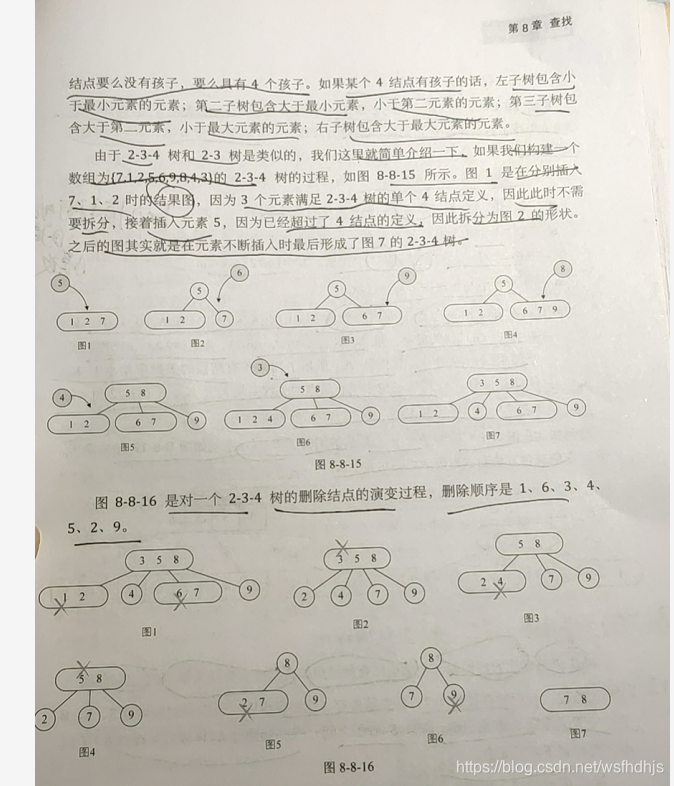 第8章 查找
结点要么没有孩子，要么具有 4 个孩子。如果某个 4 结点有孩子的话，左子树包含小
于最小元素的元素；第二子树包含大于最小元素，小于第二元素的元素；第三子树包
含大于第二元素，小于最大元素的元素；右子树包含大于最大元素的元素。
由于 2-3-4 树和 2-3 树是类似的，我们这里就简单介绍一下，如果我们构建一个
数组为{7,1,2,5,6,9,8,4,3}的 2-3-4 树的过程，如图 8-8-15 所示。图 1 是在分别插入
7、1、2 时的结果图，因为 3 个元素满足 2-3-4 树的单个 4 结点定义，因此此时不需
要拆分，接着插入元素 5，因为已经超过了 4 结点的定义，因此拆分为图 2 的形状。
之后的图其实就是在元素不断插入时最后形成了图 7 的 2-3-4 树。
5 6 9 8
5 5 5
1 2 7 1 2 7 1 2 6 7 1 2 6 7 9
图1 图2 图3 图4
3
4 5 8 5 8 3 5 8
1 2 6 7 9 1 2 4 6 7 9 1 2 4 6 7 9
图5 图6 图7
图 8-8-15
图 8-8-16 是对一个 2-3-4 树的删除结点的演变过程，删除顺序是 1、6、3、4、
5、2、9。
3 5 8 3 5 8 5 8
1 2 4 6 7 9 2 4 7 9 2 4 7 9
图1 图2 图3
5 8 8 8
2 7 9 2 7 9 7 9 7 8
图4 图5 图6 图7
图 8-8-16
https://blog.csdn.net/wsfhdhjs